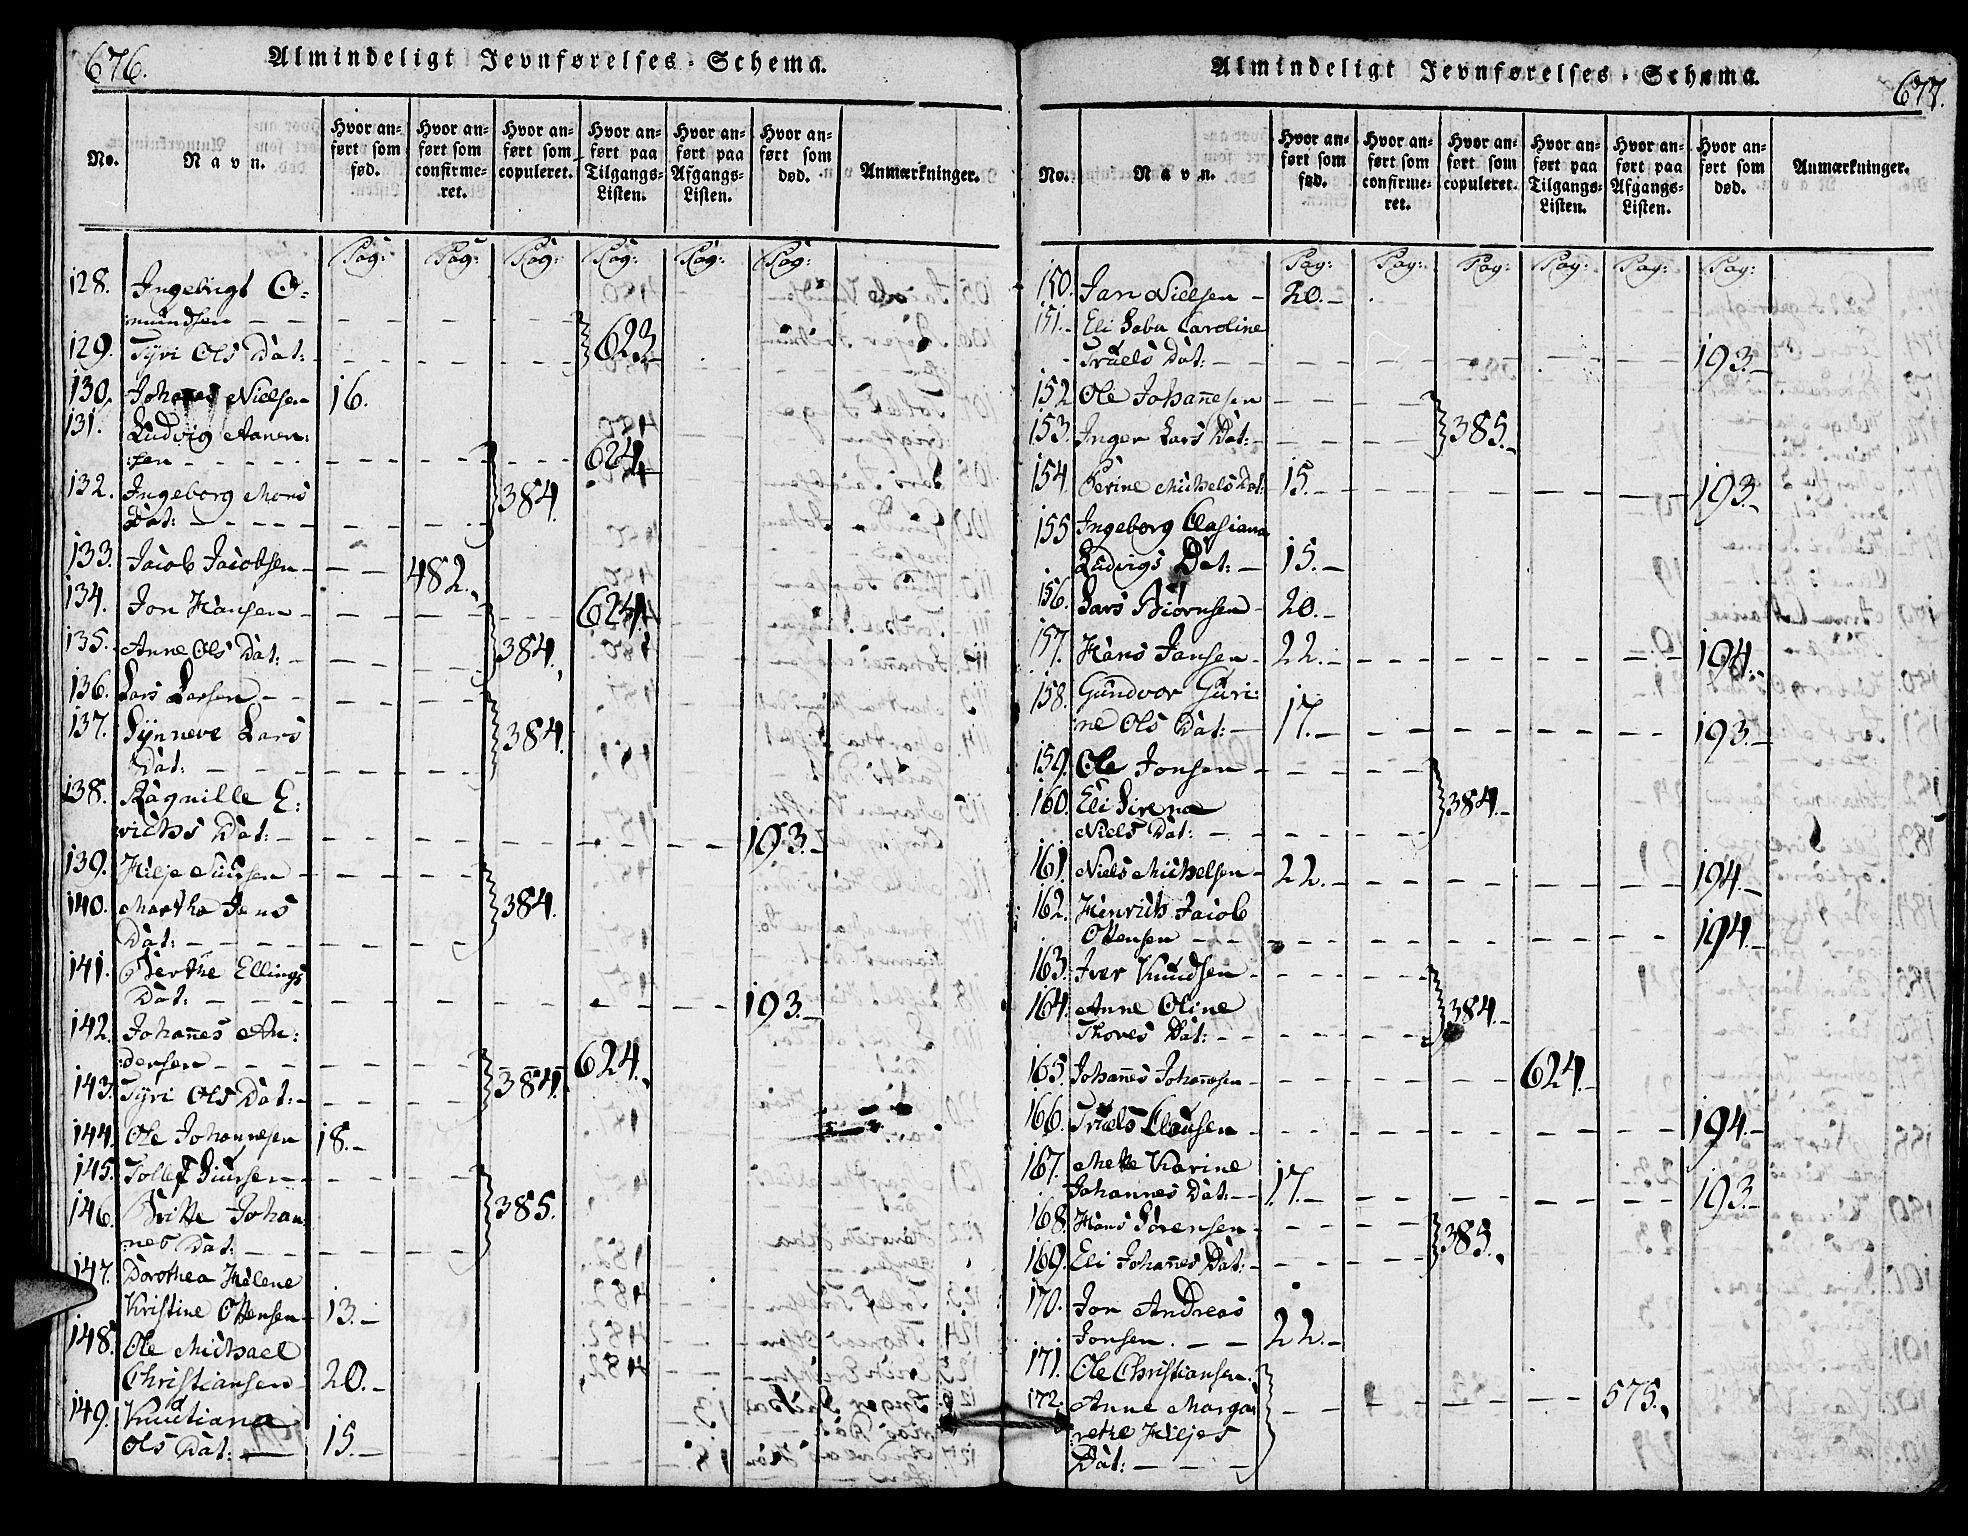 676.
Almindeligt Jevnførelses-Schema.
No.
Navn.
Hvor an-
ført som
fød.
Hvor an-
ført som
confirme-
ret.
Hvor an-
ført som
copuleret.
Hvor an-
ført paa
Tilgangs-
Listen.
Hvor an-
ført paa
Afgangs-
Listen.
Hvor an-
ført som
død.
Anmærkninger.
Pag: Pag: Pag: Pag: Pag: Pag:
128. Ingebrigt O-
mundsen - - 623
129. Tÿri Ols Dat:
130. Johan̄es Nielsen 16.
131. Ludvig Aanen:
:sen - - 624
132. Ingeborg Mons 384.
Dat: - -
133. Jacob Jacobsen - - 482.
134. Jon Hansen - - 624.
135. Anne Ols Dat: - - 384.
136. Lars Larsen - -
137. Sÿnneve Lars 384.
Dat: - -
138. Ragnille E:
richs Dat: - - 193.
139. Hilje Siursen - -
140. Martha Jens 384.
Dat: - -
141. Berthe Ellings
Dat: - - 193.
142. Johan̄es An:
:dersen - - 624.
143. Tÿri Ols Dat: - 384.
144. Ole Johannesen 18.-
145. Tollef Siursen - -
146. Britte Johan 385.
nes Dat: - -
147. Dorothea Helene
Kristine Ottensen 13.-
148. Ole Michael
Christiansen 20.-
149. Knudtiana
Ols Dat: - 15.-
677.
Almindeligt Jevnførelses-Schema.
No.
Navn.
Hvor an-
ført som
fød.
Hvor an-
ført som
confirme-
ret.
Hvor an-
ført som
copuleret.
Hvor an-
ført paa
Tilgangs-
Listen.
Hvor an-
ført paa
Afgangs-
Listen.
Hvor an-
ført som
død.
Anmærkninger.
Pag: Pag: Pag: Pag: Pag: Pag:
150. Jan Nielsen - 20.-
151. Eli Caroline
Truels Dat: - - 193.-
152 Ole Johan̄esen - -
153. Inger Lars Dat: - 385.-
154. Perine Michels Dat: 15.- - 193.-
155 Ingeborg Clasiana
Ludvigs Dat: - 15.-
156. Lars Biørnsen - 20.-
157. Hans Jansen - 22.- - 194.-
158. Gundvor Guri:
:ne Ols Dat: - 17.- - 193.-
159. Ole Jonsen - -
160. Eli Sirena 384.-
Niels Dat: - -
161. Niels Michelsen - 22.- - 194.-
162. Henrich Jacob
Ottensen - - 194.-
163. Iver Knudsen - -
164. Anne Oline 384.-
Thores Dat: - -
165. Johan̄es Johan̄esen - - 624.-
166. Truels Clausen - - 194.-
167. Mette Karine
Johannes Dat: - 17.- - 193.-
168. Hans Sørensen - - 385.
169. Eli Johan̄es Dat: - -
170. Jon Andreas
Jonsen. - - 22.-
171. Ole Christiansen.
172. Anne Marga 575.
:rethe Hiljes
Dat: - -